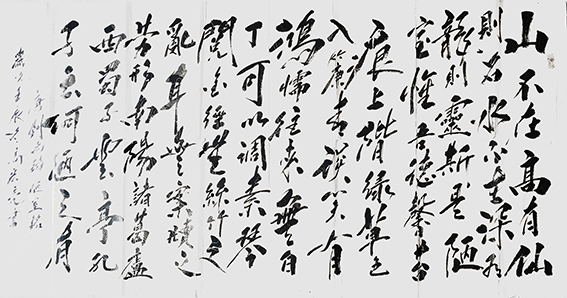 山不在高有仙
則名水不在深有
龍則靈斯是陋
室惟吾德馨苔
痕上階緑草色
入簾青談笑有
鴻儒往來無白
丁可以調素琴
閲金經無絲竹之
亂耳無案牘之
勞形南陽諸葛廬
西蜀子雲亭孔
子云何陋之有
唐劉禹錫陋室銘